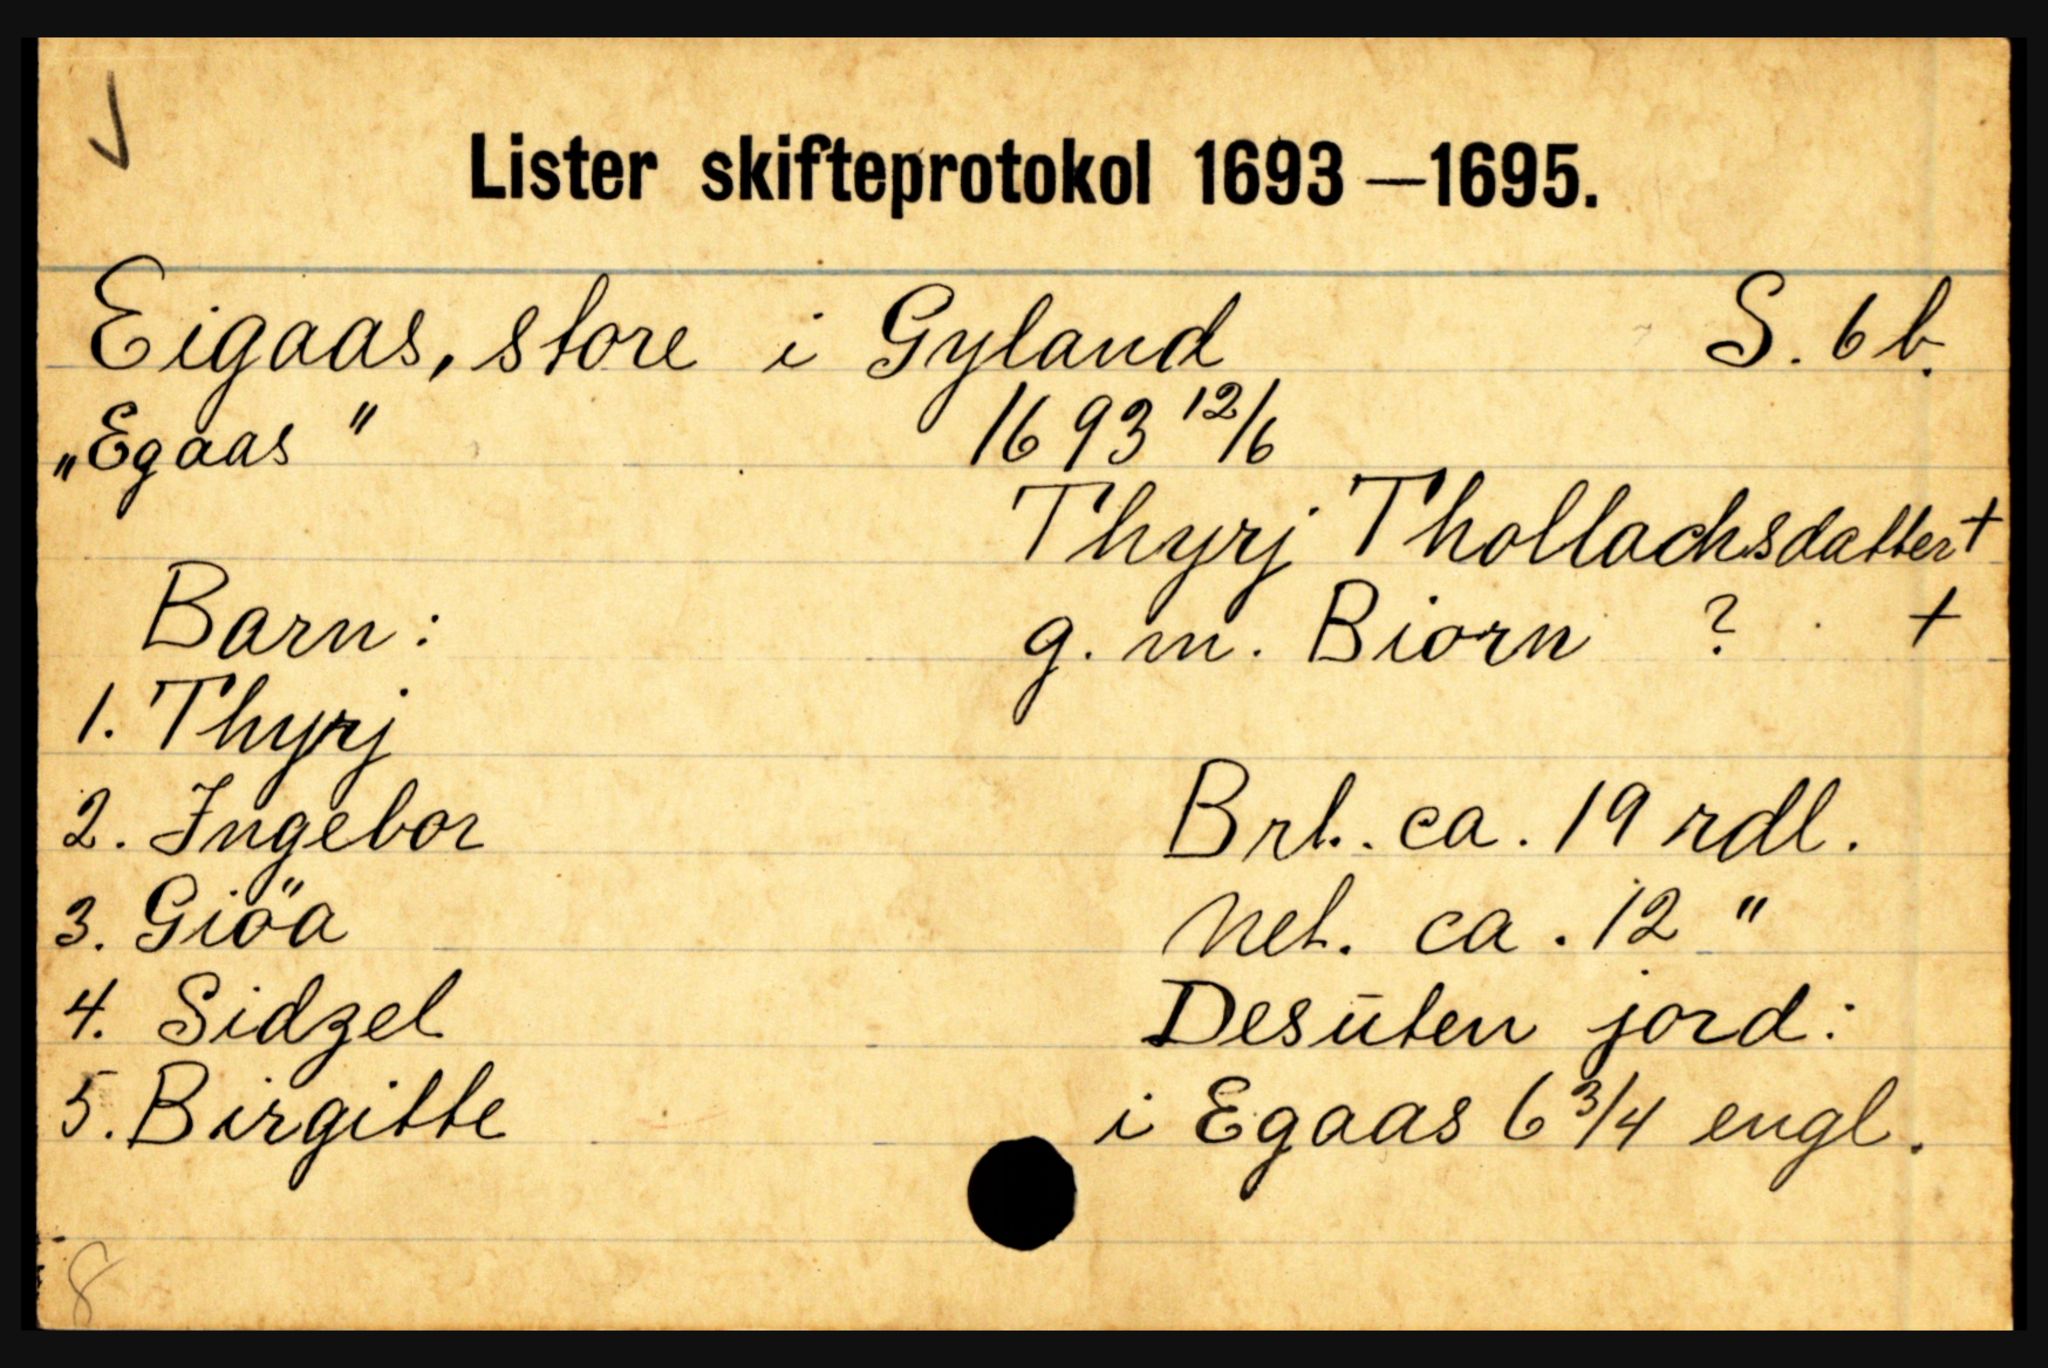 Lister skifteprotokol 1693—1695.
Eigaas, store i Gyland S. 6 b.
„Egaas" 1693 12/6
Thyrj Thollachsdatter +
Barn: g. m. Biorn ? +
1. Thyrj
2. Ingebor Brt. ca. 19 rdl.
3. Giöa Net. ca. 12 "
4. Sidzel Desūten jord:
5. Birgitte i Egaas 6 3/4 engl.
8